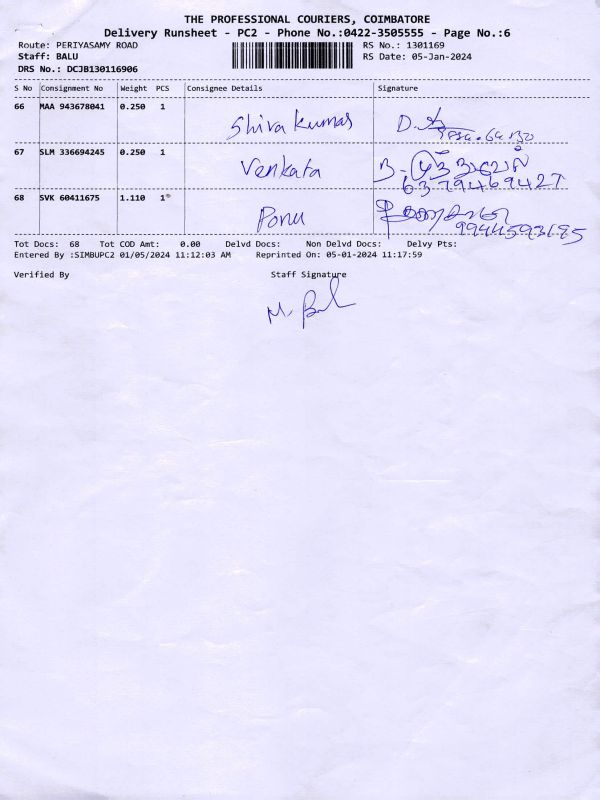 THE PROFESSIONAL COURIERS, COIMBATORE
Delivery Runsheet - PC2 - Phone No.:0422-3505555 - Page No.:6
Route: PERIYASAMY ROAD RS No.: 1301169
Staff: BALU RS Date: 05-Jan-2024
DRS No.: DCJB130116906
S No Consignment No Weight PCS Consignee Details Signature
66 MAA 943678041 0.250 1
Shiva kumar
67 SLM 336694245 0.250 1
Venkata
6379469427
68 SVK 60411675 1.110 1
Ponu
9944593195
Tot Docs: 68 Tot COD Amt: 0.00 Delvd Docs: Non Delvd Docs: Delvy Pts:
Entered By :SIMBUPC2 01/05/2024 11:12:03 AM Reprinted On: 05-01-2024 11:17:59
Verified By Staff Signature